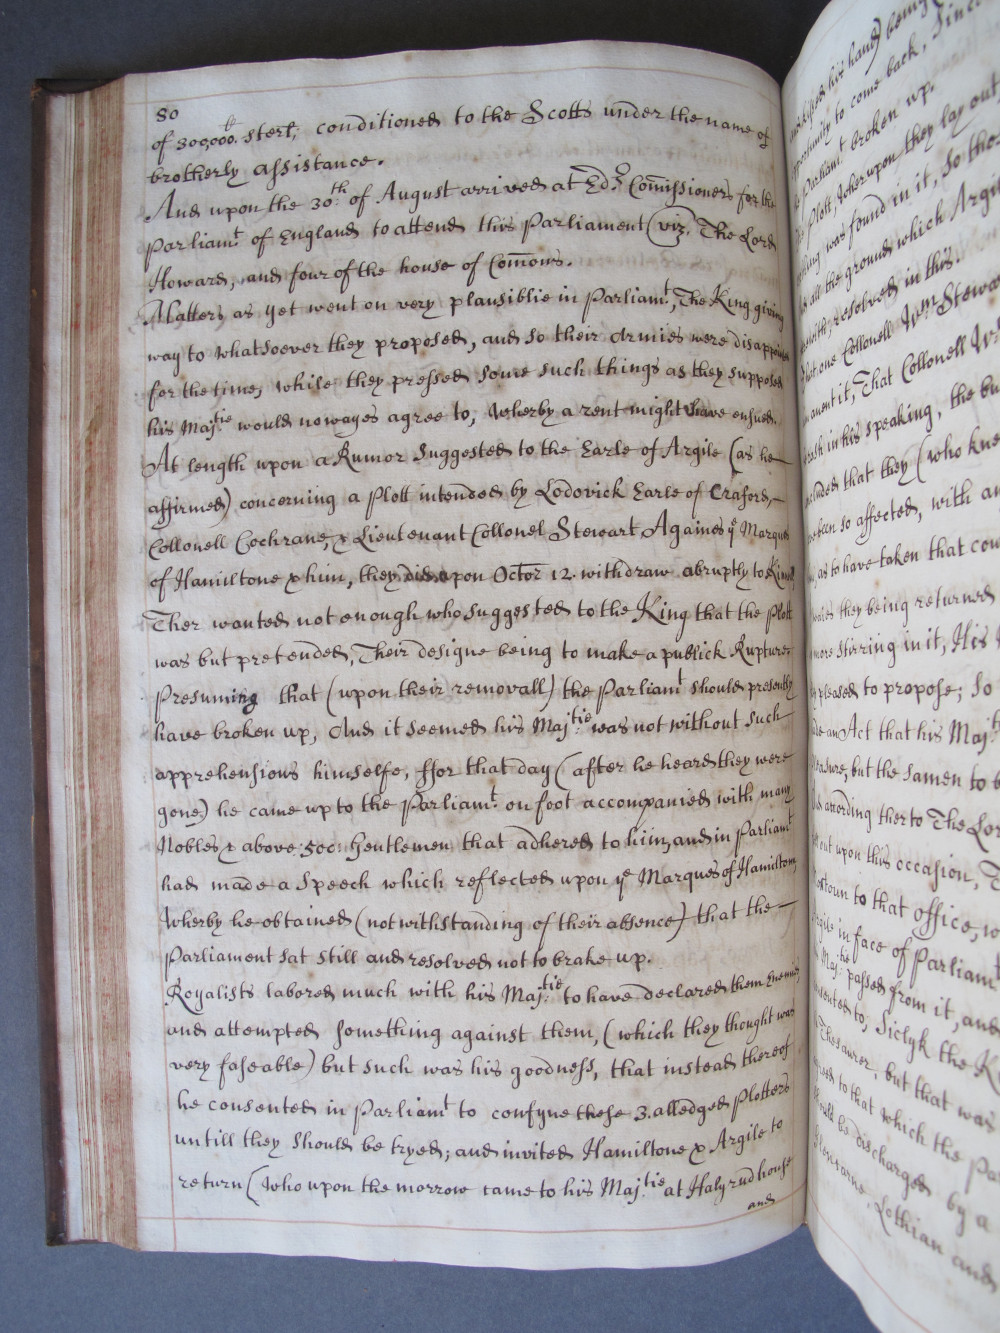 80
of 300,000.ˡⁱ sterl; conditioned to the Scotts under the name of
brotherly assistance.
And upon the 30th: of August arrived at Edr. Comissioners for the
Parliamt. of England to attend this Parliament (viz. The Lord
Howard, and four of the house of Comons.
Matters as yet went on very plausiblie in Parliamt, The King giving
way to whatsoever they proposed, and so their Armies were disappointed
for the time, while they pressed some such things as they supposed
his Majtie would nowayes agree to, Wherby a rent might have ensued.
At length upon a Rumor Suggested to the Earle of Argile (as he
affirmed) concerning a Plott intended by Lodovick Earle of Craford,
Collonell Cochrane, & Lieutenant Collonel Stewart Agains ye Marques
of Hamiltone & him, they did upon Octor 12. withdraw abruptly to
Ther wanted not enough who suggested to the King that the Plott
was but pretended, Their designe being to make a publick Rupture
Presuming that (upon their removall) the Parliamt should presently
have broken up, And it seemed his Majtie: was not without such
apprehensions himselfe, ffor that day (after he heard they were
gone) he came up to the Parliamt. on foot accompanied with many
Nobles & above 500: Gentlemen that adhered to him, and in Parliamt
had made a Speech which reflected upon ye Marques of Hamilton,
Wherby he obtained (notwithstanding of their absence) that the
Parliament sat still and resolved not to brake up.
Royalists labored much with his Majtie: to have declared them Enemies
and attempted something against them, (which they thought was
very faseable) but such was his goodness, that instead thereof
he consented in Parliamt to confyne these 3. alledged Plotters
untill they should be tryed; and invited Hamiltone & Argile to
return (Who upon the morrow came to his Majtie at Halyrudhouse
and
his hand) being
opportunity to come back, Since
Parliamt. broken up.
Plott, Wherupon they lay out
was found in it, So the
all the ground which Argile
resolved in this.
one Collonell Wm Stewart
anent it, That Collonell
in his speaking, the
that they (who knew
been so affected, with
as to have taken that
they being returned
more stirring in it, His
pleased to propose; So
an Act that his Majt
but the samen to
according therto The Lor
out upon this occasion,
to that office, w
in face of Parliamt
Majtie: passed from it, and
to, Siclyk the
Thesaurer, but that was
to that which the Pa
be discharged by a
Lothian and